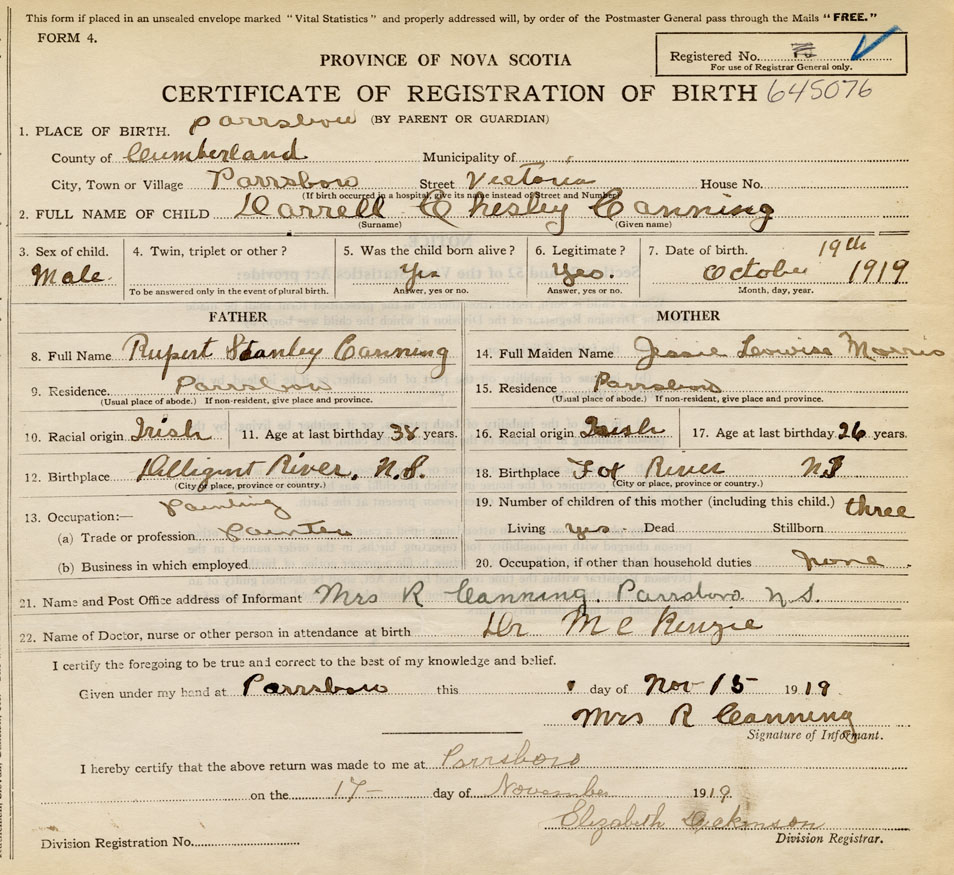 This form if placed in an unsealed envelope marked "Vital Statistics" and properly addressed will, by order of the Postmaster General pass through the Mails "FREE."
FORM 4.
Registered No.
For use of Registrar General only.
PROVINCE OF NOVA SCOTIA
CERTIFICATE OF REGISTRATION OF BIRTH 645076
(BY PARENT OR GUARDIAN)
1. PLACE OF BIRTH. Parrsboro
County of Cumberland Municipality of
City, Town or Village Parrsboro Street Victoria House No.
(If birth occurred in a hospital, give its name instead of Street and Number)
2. FULL NAME OF CHILD Darrell Chesley Canning
(Surname) (Given name)
3. Sex of child. 4. Twin, triplet or other? 5. Was the child born alive? 6. Legitimate? 7. Date of birth. 19th
Male Yes Yes. October 1919
To be answered only in the event of plural birth. Answer, yes or no. Answer, yes or no. Month, day, year.
FATHER
8. Full Name Rupert Stanley Canning
9. Residence Parrsboro
(Usual place of abode.) If non-resident, give place and province.
10. Racial origin Irish 11. Age at last birthday 38 years.
12. Birthplace Dilligint River, N.S.
(City or place, province or country.)
13. Occupation:— Painting
(a) Trade or profession Painter
(b) Business in which employed
MOTHER
14. Full Maiden Name Jessie Lowise Morris
15. Residence Parrsboro
(Usual place of abode.) If non-resident, give place and province.
16. Racial origin Irish 17. Age at last birthday 26 years.
18. Birthplace Fox River NS
(City or place, province or country.)
19. Number of children of this mother (including this child.) three
Living yes Dead Stillborn
20. Occupation, if other than household duties none
21. Name and Post Office address of Informant Mrs R Canning, Parrsboro N.S.
22. Name of Doctor, nurse or other person in attendance at birth Dr McKenzie
I certify the foregoing to be true and correct to the best of my knowledge and belief.
Given under my hand at Parrsboro this day of Nov 15 1919.
Mrs R Canning
Signature of Informant.
I hereby certify that the above return was made to me at Parrsboro
on the 17- day of November 1919.
Elizabeth Dickinson
Division Registration No. Division Registrar.